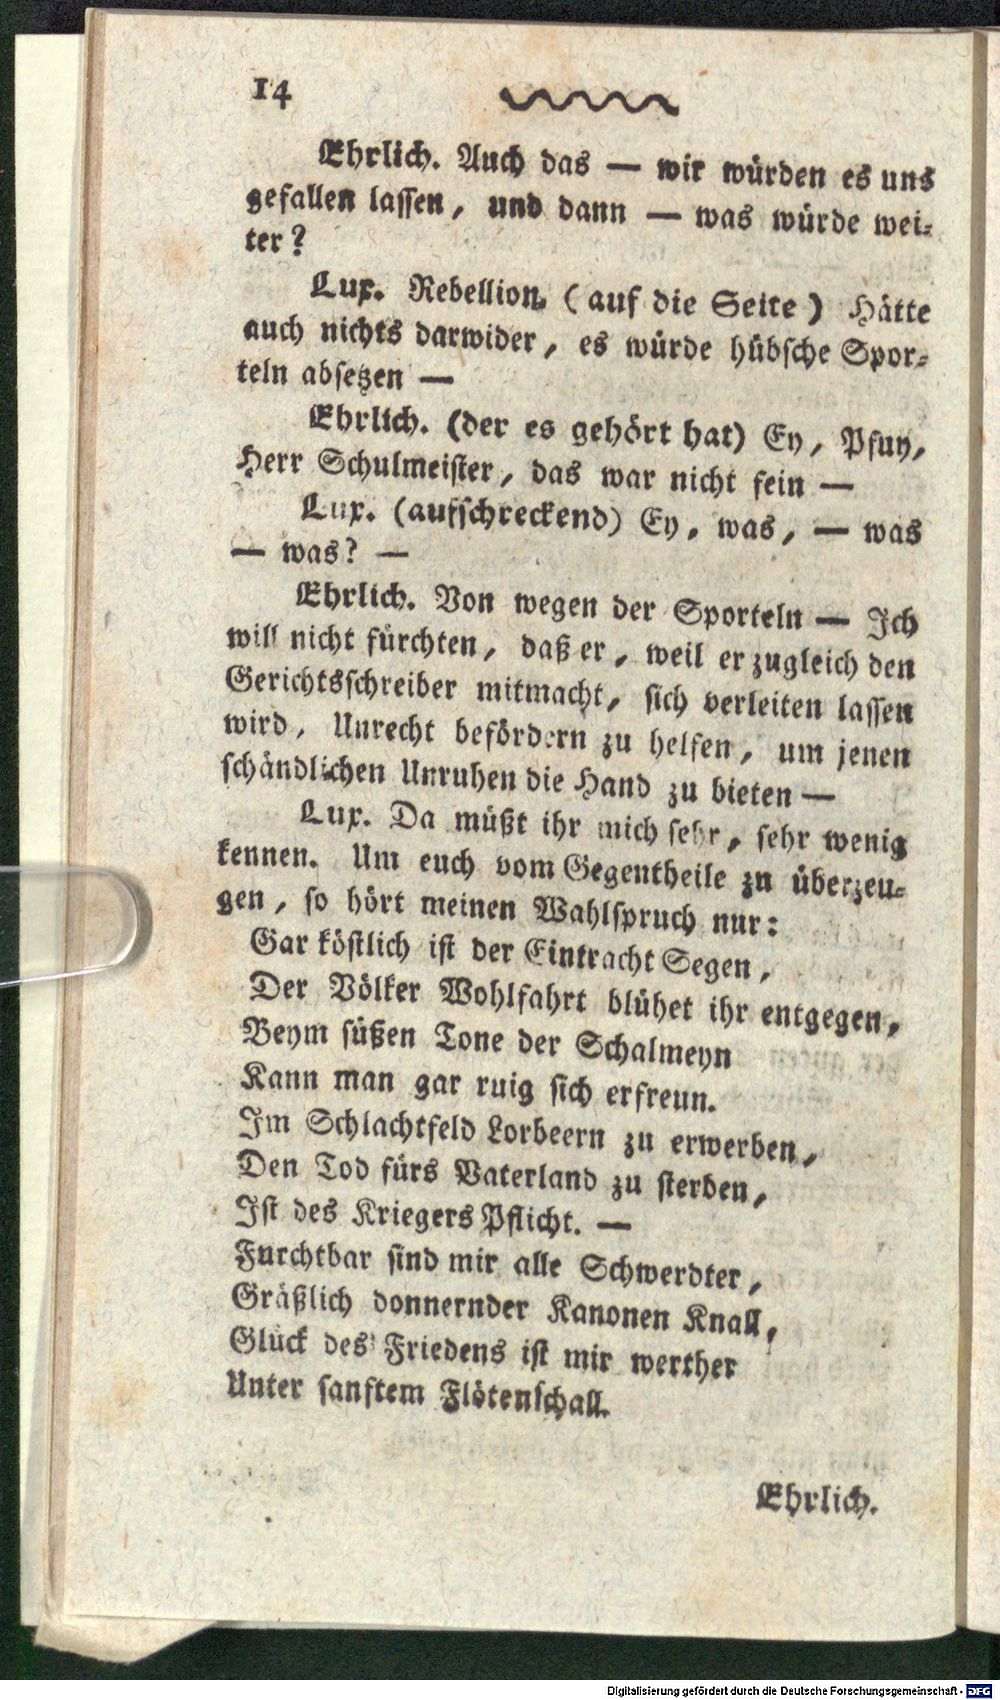 14
Ehrlich. Auch das — wir würden es uns
gefallen lassen, und dann — was würde wei-
ter?
Lux. Rebellion. (auf die Seite) Hätte
auch nichts darwider, es würde hübsche Spor-
teln absetzen —
Ehrlich. (der es gehört hat) Ey, Pfuy,
Herr Schulmeister, das war nicht fein —
Lux. (aufschreckend) Ey, was, — was
— was? —
Ehrlich. Von wegen der Sporteln — Ich
will nicht fürchten, daß er, weil er zugleich den
Gerichtsschreiber mitmacht, sich verleiten lassen
wird, Unrecht befördern zu helfen, um jenen
schändlichen Unruhen die Hand zu bieten —
Lux. Da müßt ihr mich sehr, sehr wenig
kennen. Um euch vom Gegentheile zu überzeu-
gen, so hört meinen Wahlspruch nur:
Gar köstlich ist der Eintracht Segen,
Der Völker Wohlfahrt blühet ihr entgegen,
Beym süßen Tone der Schalmeyn
Kann man gar ruig sich erfreun.
Im Schlachtfeld Lorbeern zu erwerben,
Den Tod fürs Vaterland zu sterben,
Ist des Kriegers Pflicht. —
Furchtbar sind mir alle Schwerdter,
Gräßlich donnernder Kanonen Knall,
Glück des Friedens ist mir werther
Unter sanftem Flötenschall.
Ehrlich.
Digitalisierung gefördert durch die Deutsche Forschungsgemeinschaft - DFG